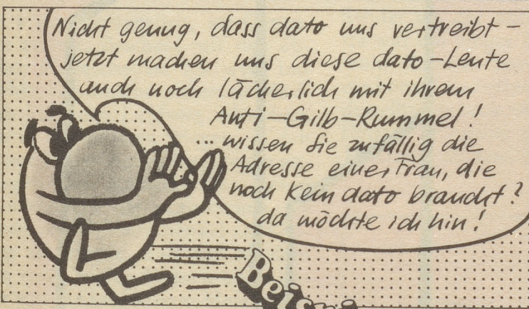 Nicht genug, dass dato uns vertreibt –
jetzt machen uns diese dato-Leute
auch noch lächerlich mit ihrem
Anti-Gilb-Rummel!
... wissen Sie zufällig die
Adresse einer Frau, die
noch kein dato braucht?
da möchte ich hin!